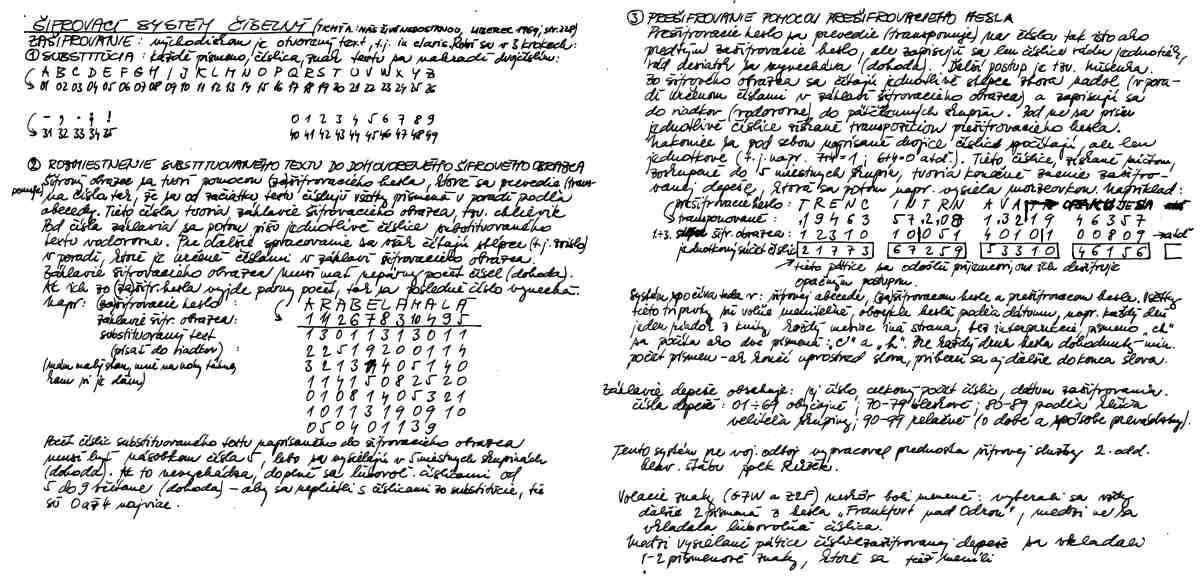 ŠIFROVACÍ SYSTÉM ČÍSELNÝ (TICHÝ A: NÁŠ ŽIVÝ NEDOSTANOU, LIBEREC 1969, str. 228)
ZAŠIFROVANIE: východiskom je otvorený text, t.j. in claris. Robí sa v 3 krokoch:
① SUBSTITÚCIA: každé písmeno, číslica, znak textu sa nahradí dvojčíslím:
A B C D E F G H I J K L M N O P Q R S T U V W X Y Z
01 02 03 04 05 06 07 08 09 10 11 12 13 14 15 16 17 18 19 20 21 22 23 24 25 26
- , . ; ! 0 1 2 3 4 5 6 7 8 9
31 32 33 34 35 40 41 42 43 44 45 46 47 48 49
② ROZMIESTNENIE SUBSTITUOVANÉHO TEXTU DO DOHOVORENÉHO ŠIFROVÉHO OBRAZCA
Šifrový obrazec sa tvorí pomocou (za)šifrovacieho hesla, ktoré sa prevedie (trans-
ponuje) na čísla tak, že sa od začiatku textu číslujú všetky písmená v poradí podľa
abecedy. Tieto čísla tvoria záhlavie šifrovacieho obrazca, tzv. chlievik
Pod čísla záhlavia sa potom píšu jednotlivé číslice substituovaného
textu vodorovne. Pre ďalšie spracovanie sa však čítajú stĺpce (t.j. zvislo)
v poradí, ktoré je určené číslami v záhlaví šifrovacieho obrazca.
Záhlavie šifrovacieho obrazca musí mať nepárny počet čísel (dohoda).
Ak ich zo (za)šifr. hesla vyjde párny počet, tak sa posledné číslo vynechá.
Napr: (za)šifrovacie heslo: A R A B E L A M A L A
záhlavie šifr. obrazca: 1 11 2 6 7 8 3 10 4 9 5
substituovaný text 1 3 0 1 1 3 1 3 0 1 1
(písať do riadkov): 2 2 5 1 9 2 0 0 1 1 4
(mám malý stan, 3 2 1 3 1 4 0 5 1 4 0
1 1 4 1 5 0 8 2 5 2 0
0 1 0 8 1 4 0 5 3 2 1
1 0 1 1 3 1 9 0 9 1 0
0 5 0 4 0 1 1 3 9
Počet číslic substituovaného textu napísaného do šifrovacieho obrazca
musí byť násobkom čísla 5, lebo sa vysielajú v 5 miestnych skupinách
(dohoda). Ak to nevychádza, doplní sa ľubovoľ. číslicami od
5 do 9 vrátane (dohoda) - aby sa neplietli s číslicami zo substitúcie, tie
sú 0 až 4 najviac.
③ PREŠIFROVANIE POMOCOU PREŠIFROVACIEHO HESLA
Prešifrovacie heslo sa prevedie (transponuje) na čísla tak isto ako
predtým zašifrovacie heslo, ale zapisujú sa len číslice rádu jednotiek,
rád desiatok sa vynecháva (dohoda). Ďalší postup je tzv. húsenica.
Zo šifrového obrazca sa čítajú jednotlivé stĺpce zhora nadol (v pora-
dí určenom číslami v záhlaví šifrovacieho obrazca) a zapisujú sa
do riadkov (vodorovne) do päťčlenných skupín. Pod ne sa píšu
jednotlivé číslice získané transpozíciou prešifrovacieho hesla.
Nakoniec sa pod sebou napísané dvojice číslic spočítajú, ale len
jednotkove (t.j. napr. 7+4=1; 6+4=0 atď.). Tieto číslice, získané súčtom,
zoskupené do 5 miestnych skupín, tvoria konečné znenie zašifro-
vanej depeše, ktorá sa potom napr. vysiela morzeovkou. Napríklad:
prešifrovacie heslo: T R E N C I N T R N A V A
transponované: 1 9 4 6 3 5 7 2 0 8 1 3 2 1 9 4 6 3 5 7
šifr. obrazca: 1 2 3 1 0 1 0 0 5 1 4 0 1 0 1 0 0 8 0 9 → atď
jednotkový súčet číslic 2 1 7 7 3 6 7 2 5 9 5 3 3 1 0 4 6 1 5 6
tieto pätice sa odošlú príjemcovi, on ich dešifruje
opačným postupom.
Systém spočíva teda v: šifrovej abecede, (za)šifrovacom hesle a prešifrovacom hesle. Všetky
tieto tri prvky sú voľne meniteľné, obvykle heslá podľa dátumu, napr. každý deň
jeden riadok z knihy, každý mesiac iná strana, bez interpunkcie, písmeno „ch"
sa počíta ako dve písmená: „c" a „h". Pre každý druh hesla dohodnutý min.
počet písmen - ak končí uprostred slova, priberú sa aj ďalšie do konca slova.
Záhlavie depeše obsahuje: jej číslo, celkom. počet číslic, dátum zašifrovania.
čísla depeší: 01÷69 obyčajné; 70-79 bleskové; 80-89 podľa kľúča
veliteľa skupiny; 90-99 relačné (o dobe a spôsobe prevádzky).
Tento systém pre voj. odboj vypracoval prednosta šifrovej služby 2. odd.
hlav. štábu pplk Růžek.
Volacie znaky (G7W a Z2F) neskôr boli menené: vyberali sa vždy
ďalšie 2 písmená z hesla „Frankfurt nad Odrou", medzi ne sa
vkladala ľubovoľná číslica.
Medzi vysielané pätice číslic zašifrovanej depeše sa vkladali
1-2 písmenové znaky, ktoré sa tiež menili